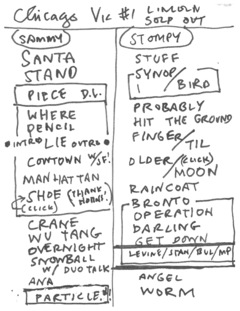 Chicago Vic #1 LINCOLN
SOLD OUT
SAMMY
SANTA
STAND
PIECE D.L.
WHERE
PENCIL
INTRO LIE OUTRO
COWTOWN W/SF!
MANHATTAN
SHOE (THANK HORNS!)
(CLICK)
CRANE
WU TANG
OVERNIGHT
SNOWBALL
W/ DUO TALK
ANA
PARTICLE!
STOMPY
STUFF
SYNOP/
1 / BIRD
PROBABLY
HIT THE GROUND
FINGER/
TIL
OLDER/(CLICK)
MOON
RAINCOAT
BRONTO
OPERATION
DARLING
GET DOWN
LEVINE/STAN/BUL/MP
ANGEL
WORM